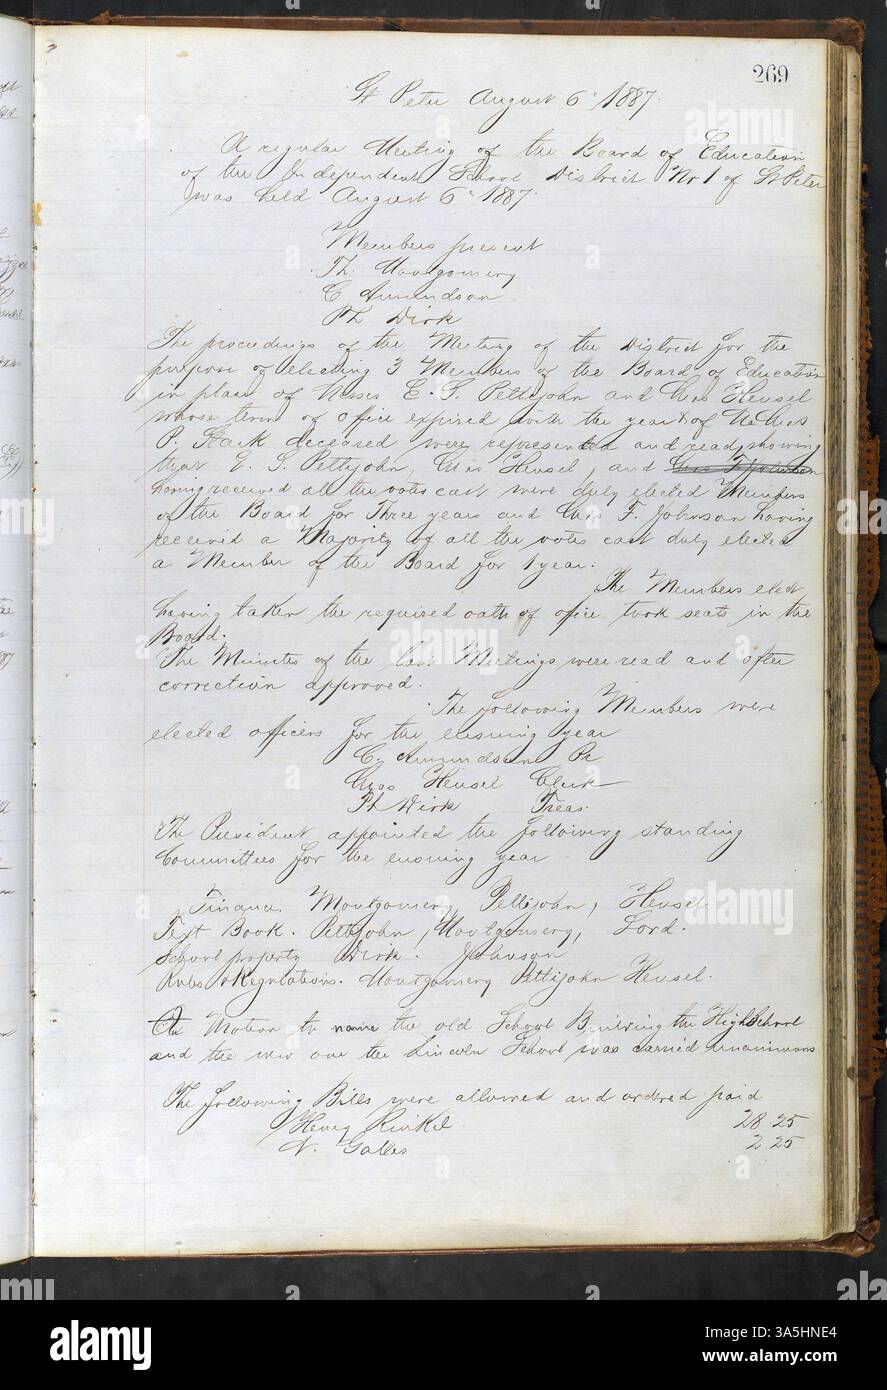 269
St Peter August 6th 1887.
A regular Meeting of the Board of Education
of the Independent School District No 1 of St Peter
was held August 6th 1887.
Members present
Th. Montgomery
C Amundson
Ph Dirk
The proceedings of the Meeting of the District for the
purpose of electing 3 Members of the Board of Education
in place of Messrs E. S. Pettijohn and Chas Hensel
whose term of office expired with the year & of
P. Stark deceased were represented and read, showing
that E. S. Pettijohn, Chas Hensel, and
having received all the votes cast were duly elected Members
of the Board for Three years and Chs F. Johnson having
received a Majority of all the votes cast duly elected
a Member of the Board for 1 year.
The Members elect
having taken the required oath of office took seats in the
Board.
The Minutes of the last Meetings were read and after
correction approved.
The following Members were
elected officers for the ensuing year
C. Amundson Pr
Chas Hensel Clerk
Ph Dirk Treas.
The President appointed the following standing
Committees for the ensuing year
Finance Montgomery, Pettijohn, Hensel
Text Book. Pettijohn, Montgomery, Lord.
School property Dirk. Johnson
Rules & Regulations. Montgomery Pettijohn Hensel.
A Motion to name the old School Building the High School
and the new one the Lincoln School was carried unanimous
The following Bills were allowed and ordered paid
Henry Rinkel 28 25
N. Galles 2 25
alamy
Image ID: 3A5HNE4
www.alamy.com